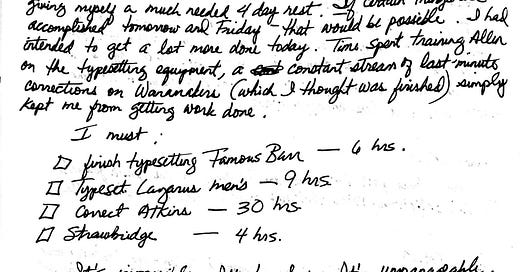 giving myself a much needed 4 day rest. If certain
accomplished tomorrow and Friday that would be possible. I had
intended to get a lot more done today. Time spent training Allen
on the typesetting equipment, a constant stream of last minute
corrections on Wanamakers (which I thought was finished) simply
kept me from getting work done.
I must:
☐ finish typesetting Famous Barr — 6 hrs.
☐ Typeset Lazarus men's — 9 hrs
☐ Correct Atkins — 30 hrs
☐ Strawbridge — 4 hrs.